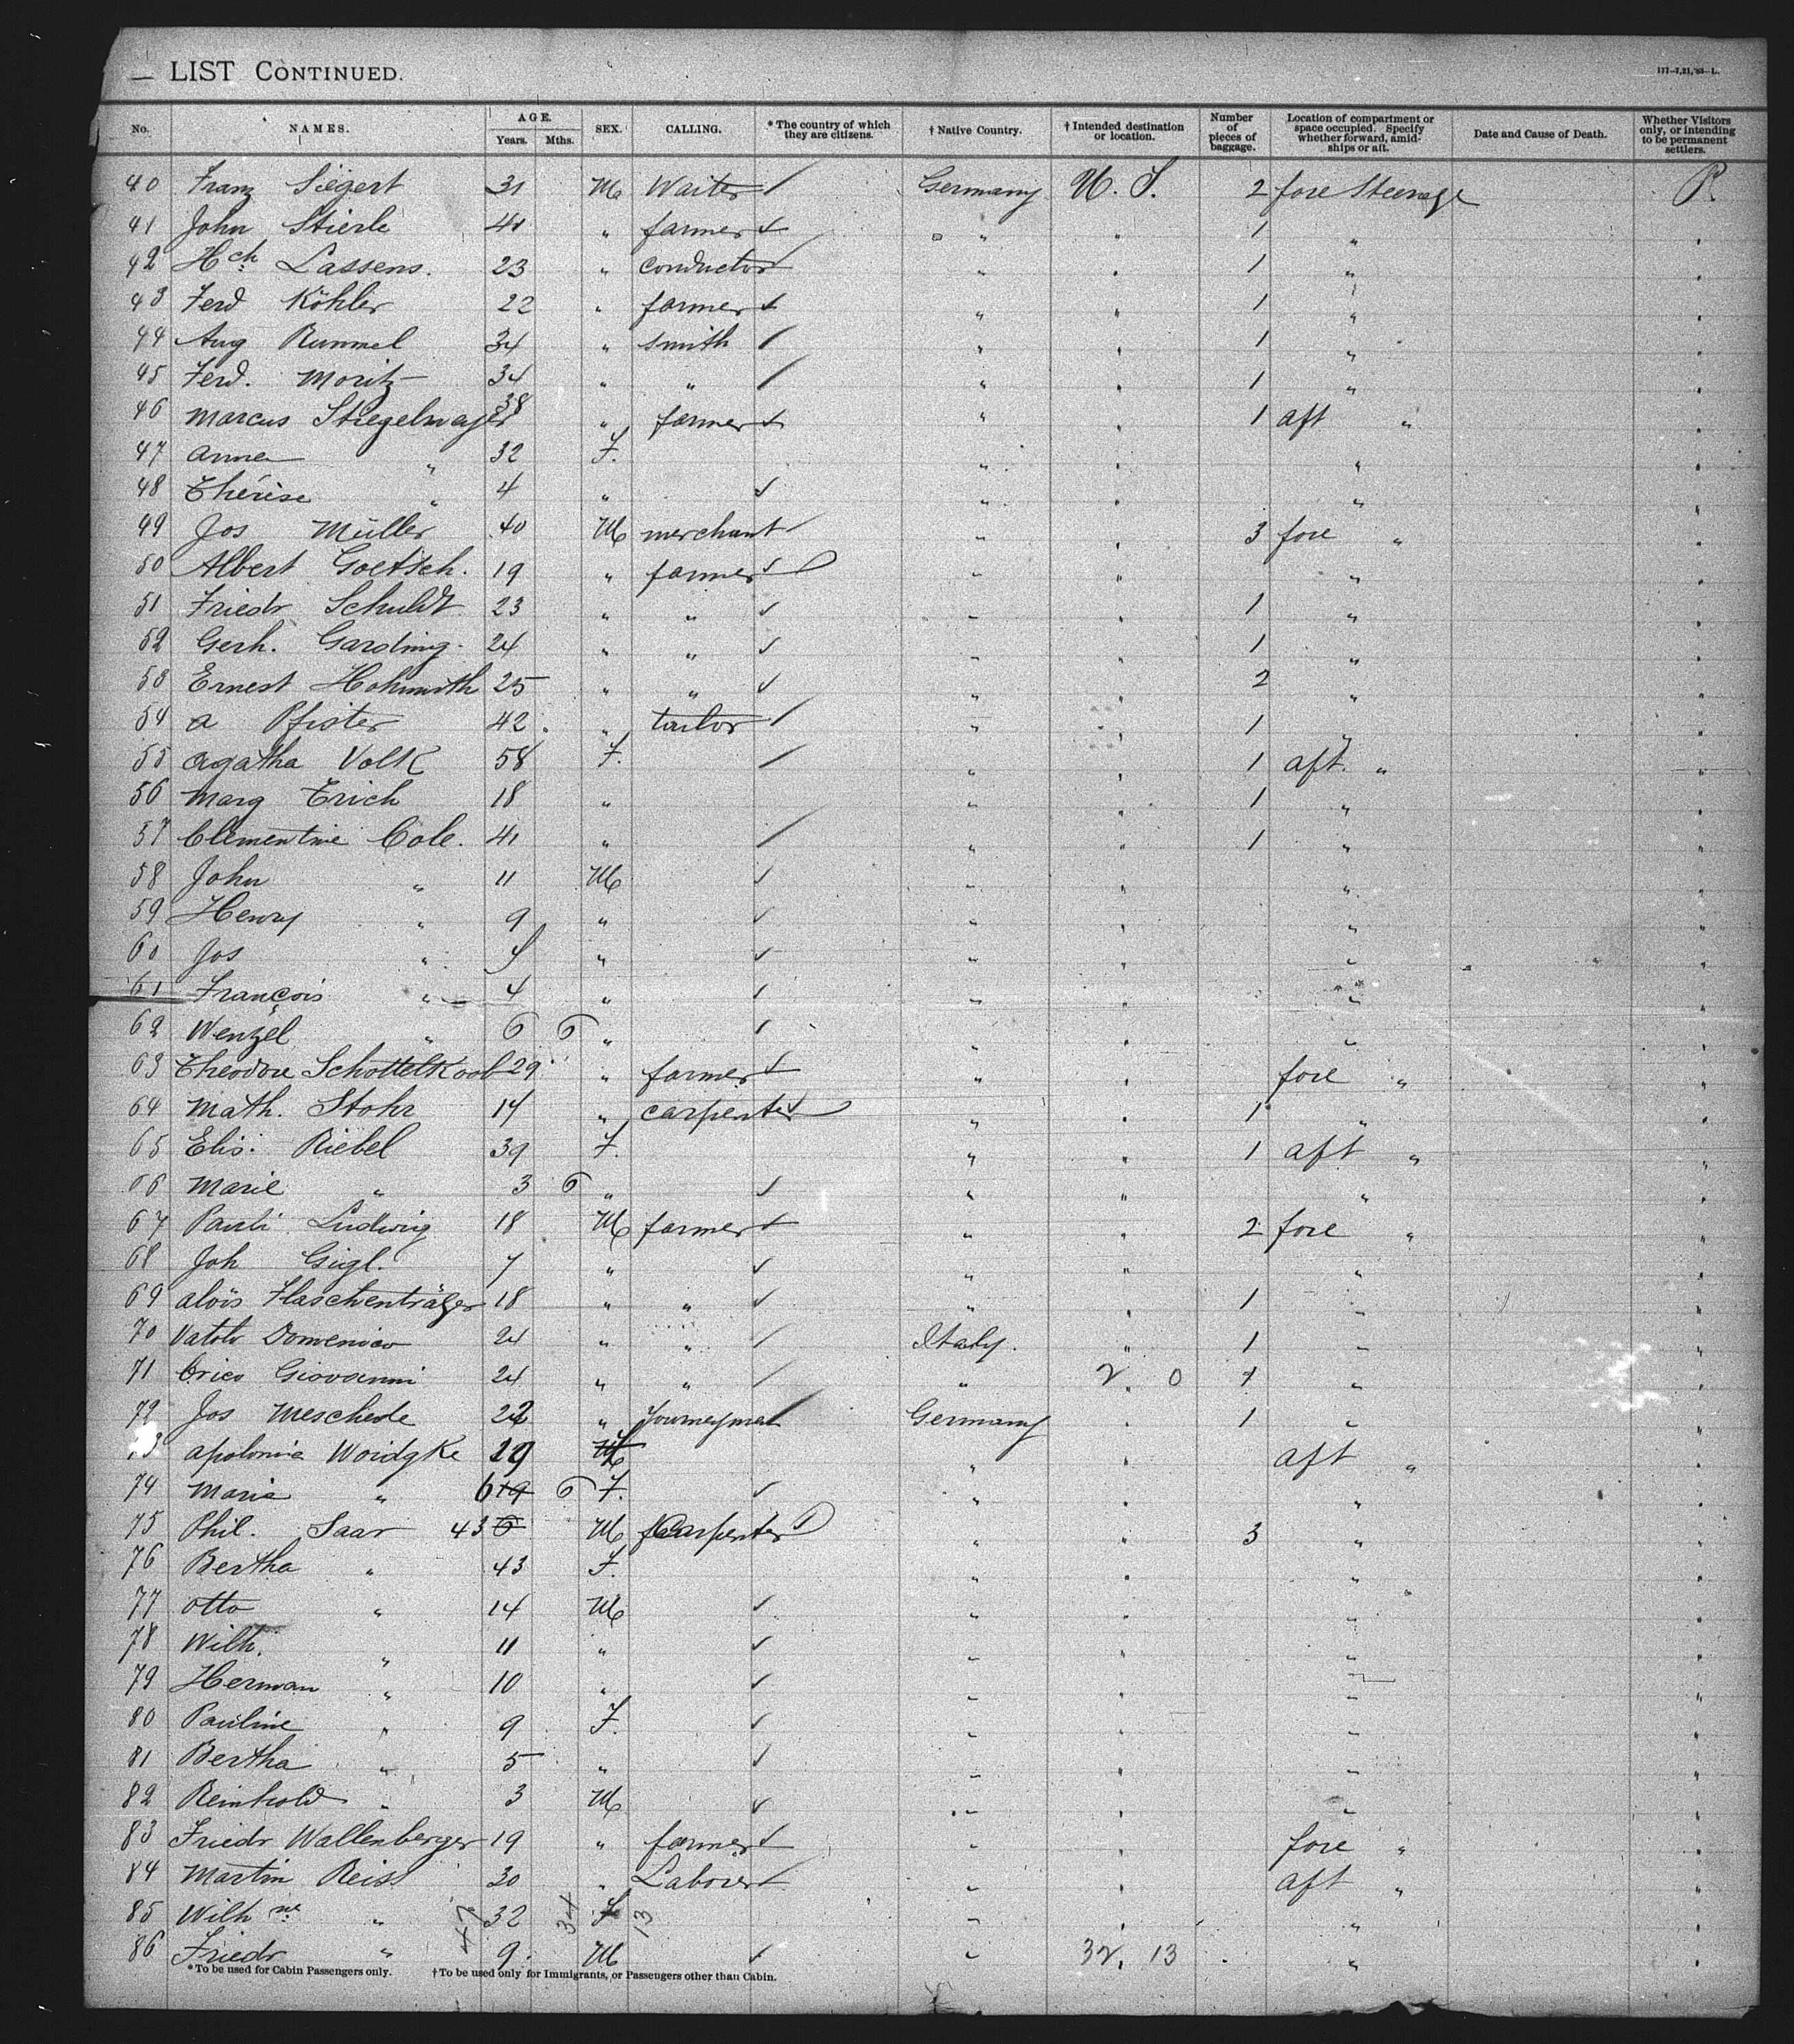 LIST CONTINUED.
No. NAMES. AGE. Years. Mths. SEX. CALLING. * The country of which they are citizens. † Native Country. † Intended destination or location. Number of pieces of baggage. Location of compartment or space occupied. Specify whether forward, amidships or aft. Date and Cause of Death. Whether Visitors only, or intending to be permanent settlers.
40 Franz Siegert 31 M Waiter / Germany U. S. 2 fore Steerage P.
41 John Stierle 41 " farmer " " 1 " "
42 Hch. Lassens. 23 " conductor " " 1 " "
43 Ferd Köhler 22 " farmer " " 1 " "
44 Aug Rummel 34 " smith / " " 1 " "
45 Ferd. Moritz 34 " " / " " 1 " "
46 Marcus Stiegelmayer 38 " farmer " " 1 aft " "
47 Anna " 32 F. " " " "
48 Thérèse " 4 " ✓ " " " "
49 Jos Müller 40 M merchant / " " 3 fore " "
50 Albert Goetsch. 19 " farmer " " " "
51 Friedr Schuldt 23 " " ✓ " " 1 " "
52 Gerh. Garding. 24 " " ✓ " " 1 " "
53 Ernest Hohmuth 25 " " ✓ " " 2 " "
54 A Pfister 42 " tailor / " " 1 " "
55 Agatha Volk 58 F. / " " 1 aft. " "
56 Marg Erich 18 " " " 1 " "
57 Clementine Cole. 41 " / " " 1 " "
58 John " 11 M ✓ " " " "
59 Henry " 9 " ✓ " " " "
60 Jos " " ✓ " " " "
61 François " 4 " ✓ " " " "
62 Wenzel " 6 6 " / " " " "
63 Theodore Schottelkoob 29 " farmer " " fore " "
64 Math. Stohr 14 " carpenter " " 1 " "
65 Elis. Riebel 39 F. " " 1 aft " "
66 Marie " 3 6 " ✓ " " " "
67 Pauli Ludwig 18 M farmer " " 2 fore " "
68 Joh Gigl. 7 " ✓ " " " "
69 Aloïs Flaschenträger 18 " " ✓ " " 1 " "
70 Domenico 24 " " / Italy. " 1 " "
71 Giovanni 24 " " / " 2 0 1 " "
72 Jos Meschede 22 " Journeyman Germany " 1 " "
73 Apolonia Woidgke 29 " " aft " "
74 Maria " 6 19 6 F. ✓ " " " "
75 Phil. Saar 43 6 M Carpenter " " 3 " "
76 Bertha " 43 F. " " " "
77 Otto " 14 M ✓ " " " "
78 Wilh. " 11 " ✓ " " " "
79 Herman " 10 " ✓ " " " "
80 Pauline " 9 F. ✓ " " " "
81 Bertha " 5 " ✓ " " " "
82 Reinhold " 3 M ✓ " " " "
83 Friedr Wallenberger 19 " farmer " " fore " "
84 Martin Reiss 30 " Laborer " " aft " "
85 Wilh ne " 47 32 34 F 13 " " " "
86 Friedr " 9 M ✓ " 32, 13 " "
* To be used for Cabin Passengers only. † To be used only for Immigrants, or Passengers other than Cabin.